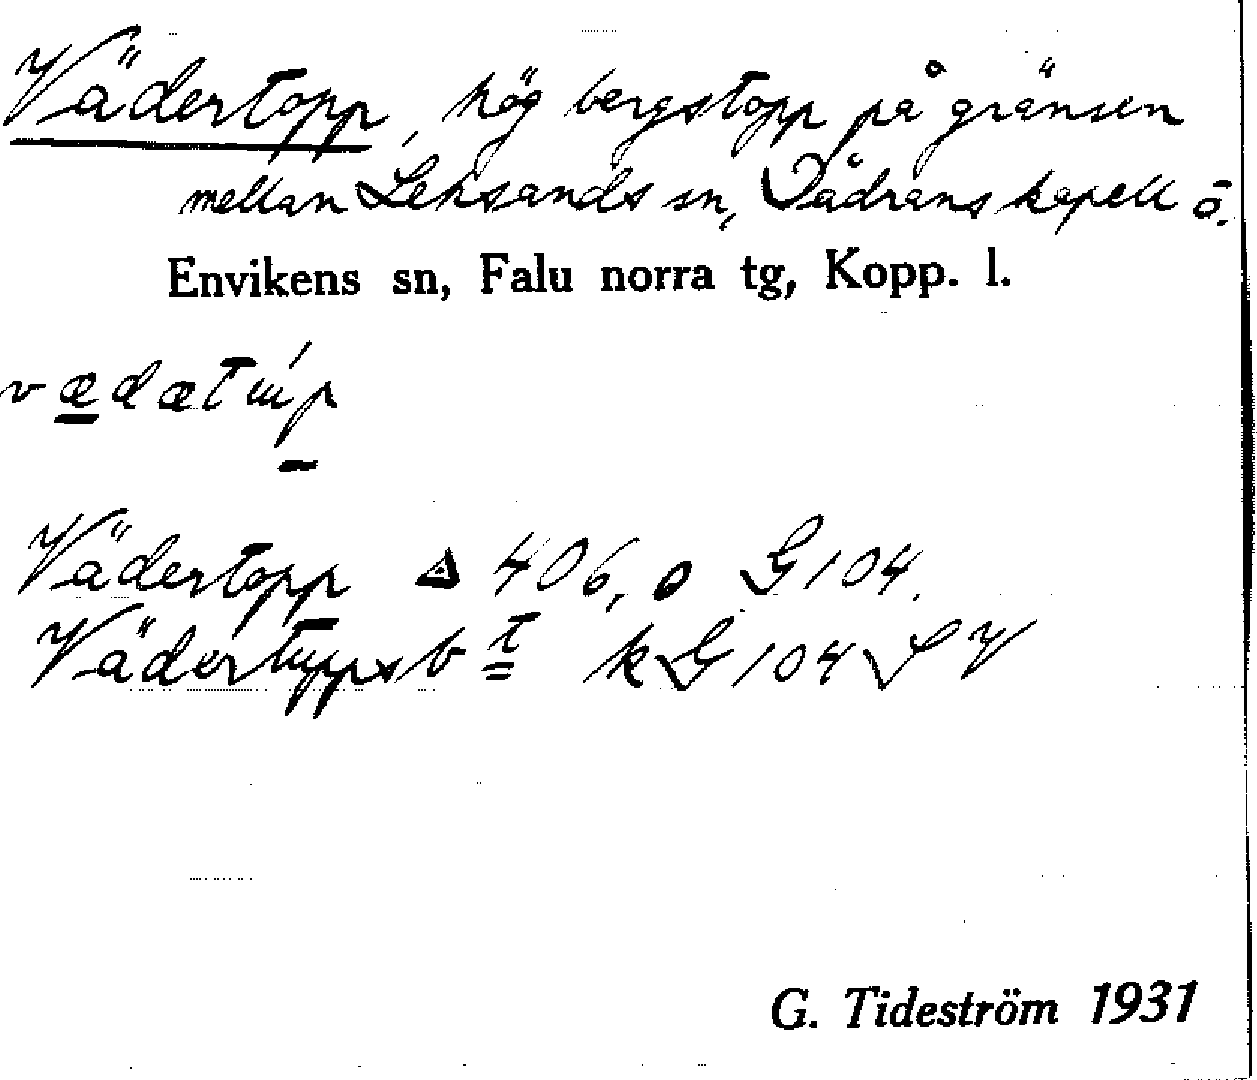 Vädertopp, hög bergstopp på gränsen
mellan Leksands sn, Dådrans kapell o.
Envikens sn, Falu norra tg, Kopp. l.
vædæt
Vädertopp △ 406, o G 104.
Vädertuppsb t k G 104 S V
G. Tideström 1931